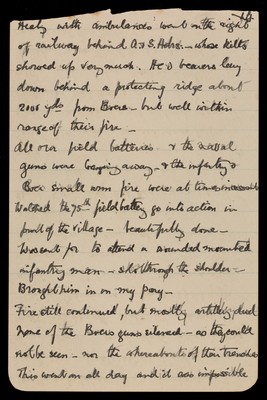 Healy with ambulances went on the right
of railway behind A & S. Hdrs. - whose kilts
showed up very much. He & bearers lay
down behind a protecting ridge about
2000 yds from Boers - but well within
range of their fire -
All our field batteries & the naval
guns were banging away - & the infantry &
Boer small arm fire were at times incessant
Watched the 75th field battery go into action in
front of the village - beautifully done -
Was sent for to attend a wounded mounted
infantry man - shot through the shoulder -
Brought him in on my pony -
Fire still continued, but mostly artillery duel
None of the Boers guns silenced - as they could
not be seen - nor the whereabouts of their trenches
This went on all day and it was impossible